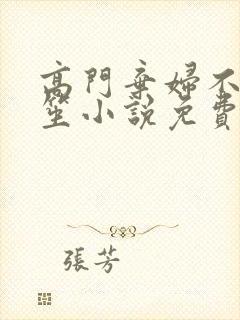 高門棄婦不
笙小說免費
張芳